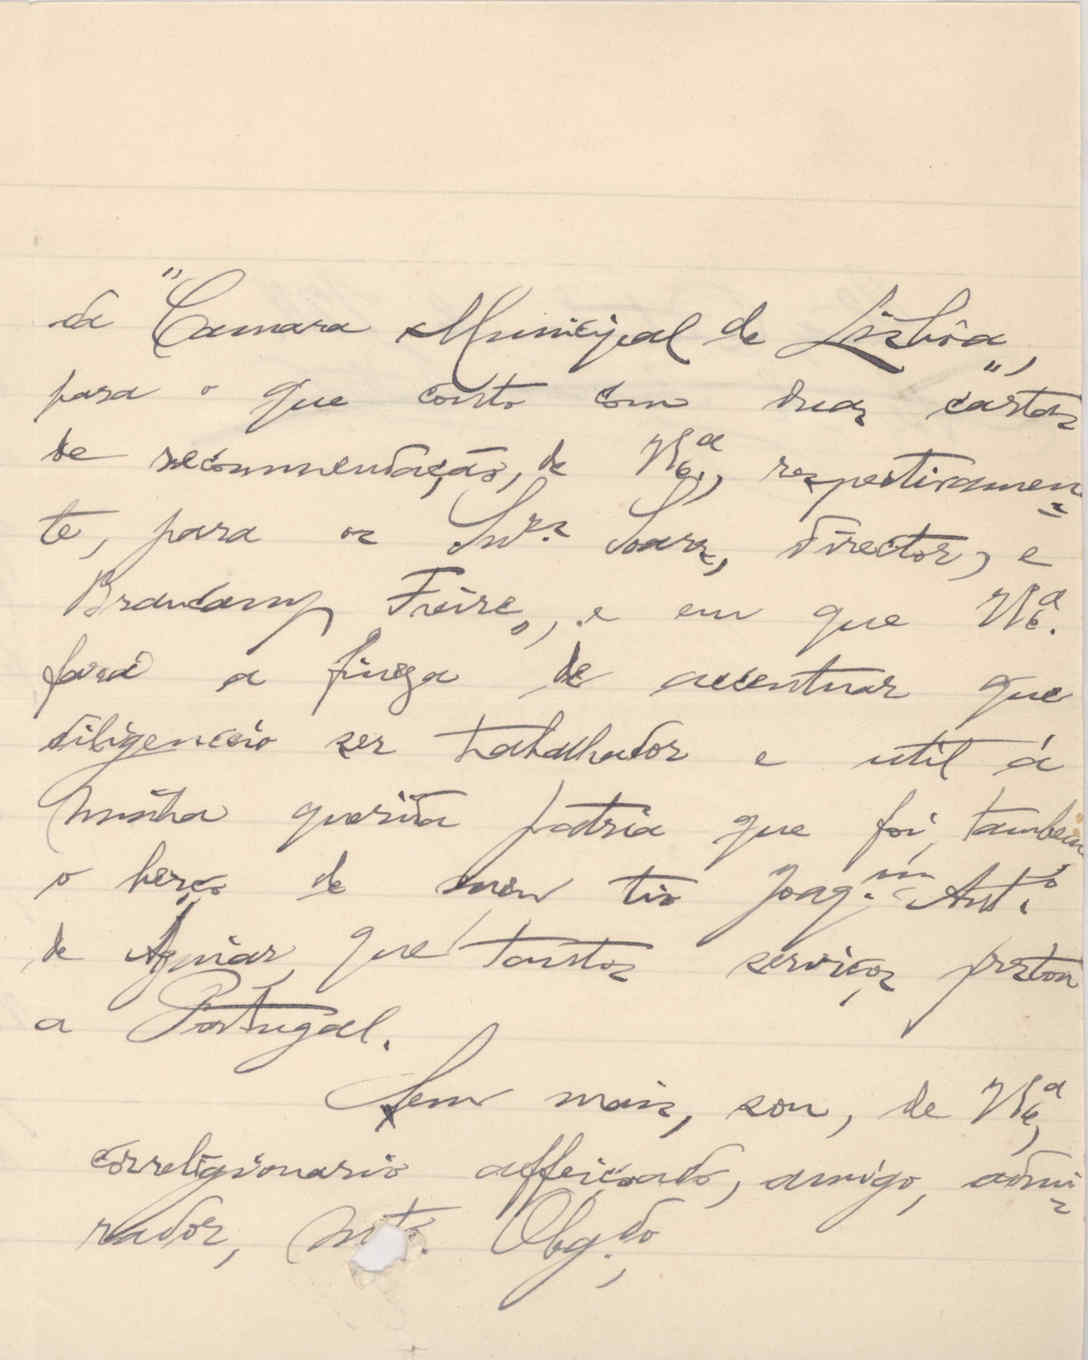 da "Camara Municipal de Lisbôa",
para o que conto com duas cartas
de recommendação, de V. Ex.ª, respectivamen-
te, para os Snrs. Soares, director, e
Braamcamp Freire, e em que V. Ex.ª
fará a fineza de accentuar que
diligenceio ser trabalhador e util á
minha querida patria que foi, tambem
o berço de meu tio Joaq.im Ant.º
de Aguiar que tantos serviços prestou
a Portugal.
Sem mais, sou, de V. Ex.ª,
correligionario affeiçoado, amigo, admi-
rador, m.to Obg.do,